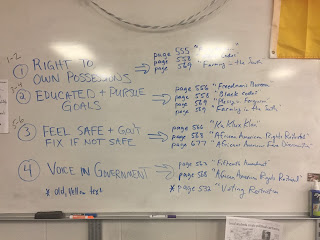 1-2
① RIGHT TO OWN POSSESSIONS
page 555
page 558
page 569 "Farming in the South"
② EDUCATED + PURSUE GOALS
page 556 "Freedmen's Bureau
page 558 "Black codes"
page 569 "Plessy v. Ferguson
page 569 "Farming in the South"
5-6
③ FEEL SAFE + GOV'T FIX IF NOT SAFE
page 566 "Ku Klux Klan"
page 568 "African American Rights Restricted"
page 677 "African Americans Face Discrimination
④ VOICE IN GOVERNMENT
page 564 "Fifteenth Amendment"
page 568 "African American Rights Restrict"
* old, yellow text
* page 532 "Voting Restriction